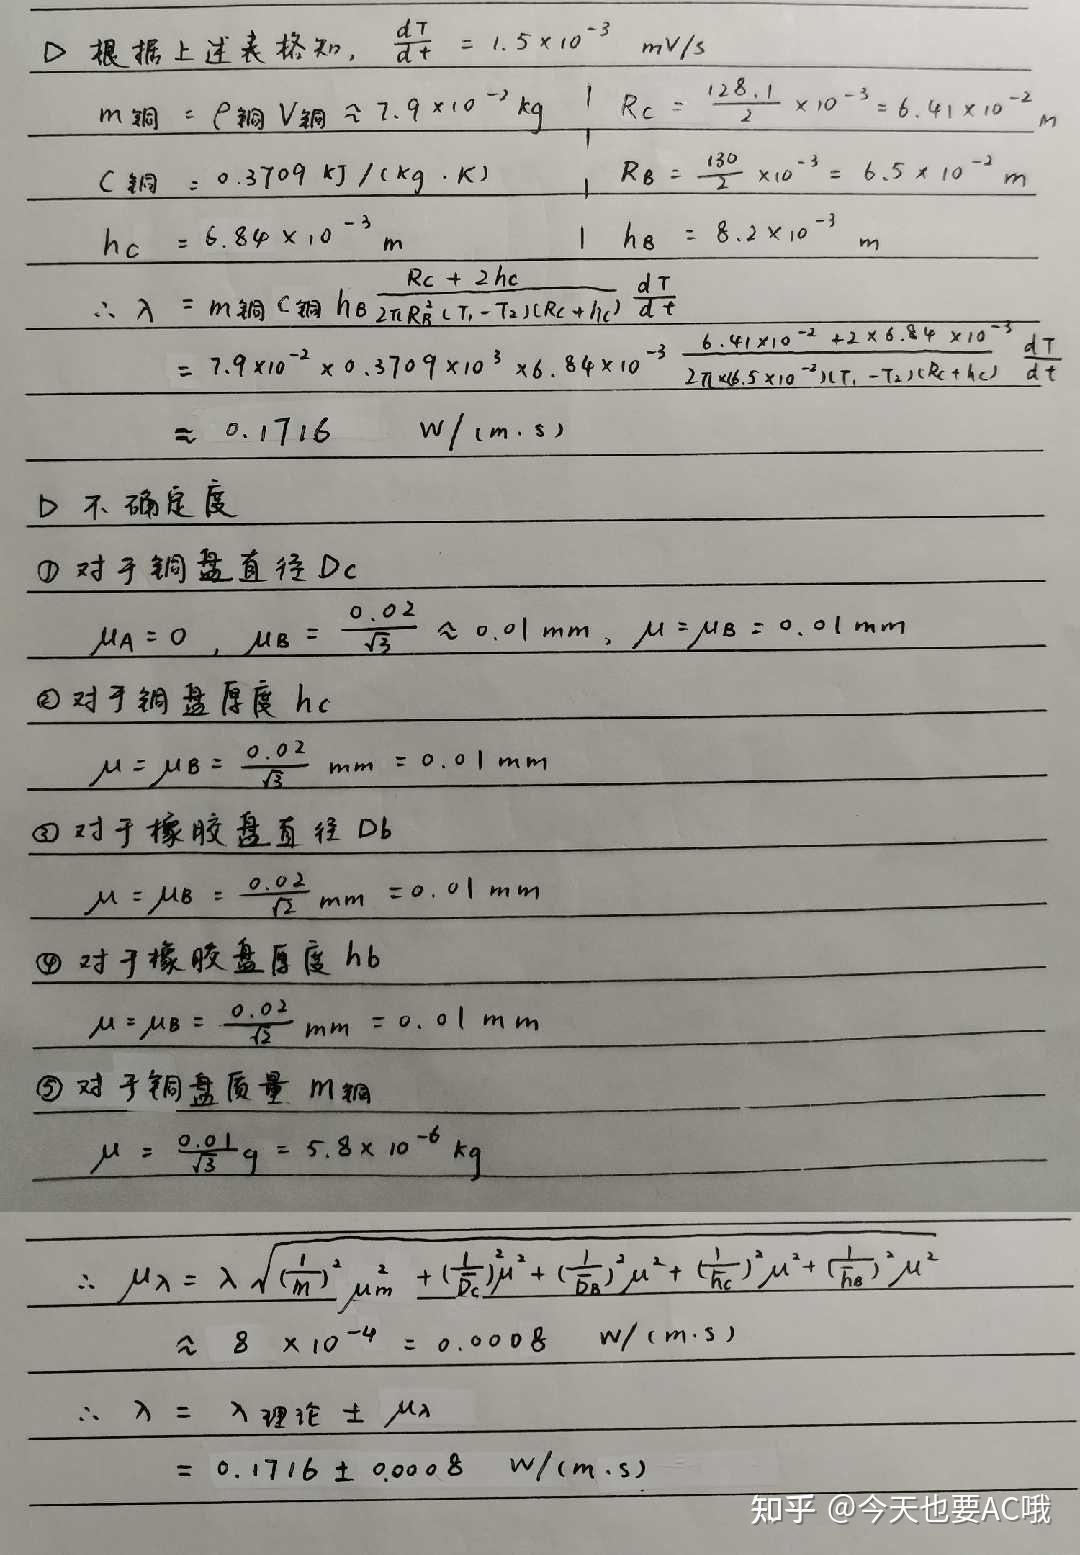 ▷ 根据上述表格知, dT/dt = 1.5×10⁻³ mV/s
m铜 = ρ铜V铜 ≈ 7.9×10⁻² kg | R_C = 128.1/2 ×10⁻³ = 6.41×10⁻² m
C铜 = 0.3709 kJ/(kg·K) | R_B = 130/2 ×10⁻³ = 6.5×10⁻² m
h_C = 6.84×10⁻³ m | h_B = 8.2×10⁻³ m
∴ λ = m铜C铜h_B (R_C+2h_C)/(2πR_B²(T₁-T₂)(R_C+h_C)) dT/dt
= 7.9×10⁻² × 0.3709×10³ × 6.84×10⁻³ (6.41×10⁻²+2×6.84×10⁻³)/(2π×(6.5×10⁻²)(T₁-T₂)(R_C+h_C)) dT/dt
≈ 0.1716 W/(m·s)
▷ 不确定度
① 对于铜盘直径Dc
μ_A = 0, μ_B = 0.02/√3 ≈ 0.01mm, μ = μ_B = 0.01mm
② 对于铜盘厚度hc
μ = μ_B = 0.02/√3 mm = 0.01mm
③ 对于橡胶盘直径Db
μ = μ_B = 0.02/√2 mm = 0.01mm
④ 对于橡胶盘厚度hb
μ = μ_B = 0.02/√2 mm = 0.01mm
⑤ 对于铜盘质量m铜
μ = 0.01/√3 g = 5.8×10⁻⁶ kg
∴ μ_λ = λ√((1/m)²μ_m² + (1/D_C)²μ² + (1/D_B)²μ² + (1/h_C)²μ² + (1/h_B)²μ²)
≈ 8×10⁻⁴ = 0.0008 W/(m·s)
∴ λ = λ理论 ± μ_λ
= 0.1716 ± 0.0008 W/(m·s)
知乎 @今天也要AC哦